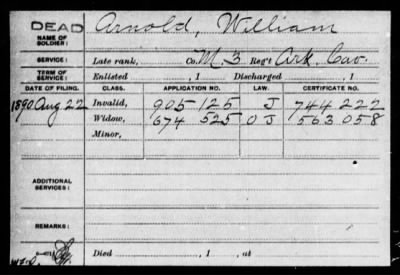 DEAD
NAME OF SOLDIER: Arnold, William
SERVICE: Late rank, Co. M. 3 Reg't Ark. Cav.
TERM OF SERVICE: Enlisted , 1 Discharged , 1
DATE OF FILING. CLASS. APPLICATION NO. LAW. CERTIFICATE NO.
1890 Aug 22 Invalid, 905 125 J 744 222
Widow, 674 525 O J 563 058
Minor,
ADDITIONAL SERVICES:
REMARKS:
Died , 1 , at